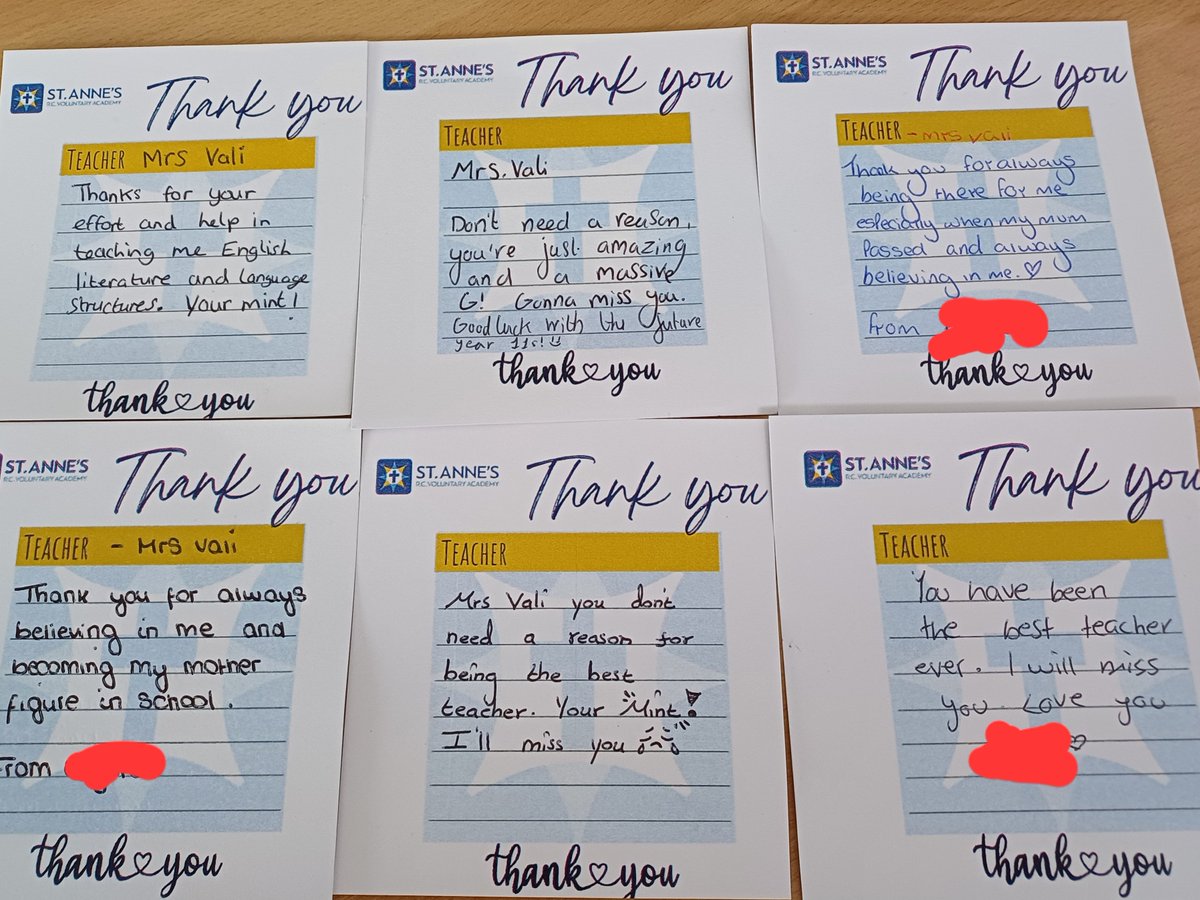 ST.ANNE'S
R.C. VOLUNTARY ACADEMY
Thank you
TEACHER Mrs Vali
Thanks for your
effort and help in
teaching me English
literature and language
structures. Your mint!
thank you
ST.ANNE'S
R.C. VOLUNTARY ACADEMY
Thank you
TEACHER
Mrs. Vali
Don't need a reason,
you're just amazing
and a massive
G! Gonna miss you.
Good luck with the future
year 11s!
thank you
ST.ANNE'S
R.C. VOLUNTARY ACADEMY
Thank you
TEACHER - Mrs Vali
Thank you for always
being there for me
especially when my mum
Passed and always
believing in me.
from
thank you
ST.ANNE'S
R.C. VOLUNTARY ACADEMY
Thank you
TEACHER - Mrs Vali
Thank you for always
believing in me and
becoming my mother
figure in school.
From
thank you
ST.ANNE'S
R.C. VOLUNTARY ACADEMY
Thank you
TEACHER
Mrs Vali you don't
need a reason for
being the best
teacher. Your Mint!
I'll miss you
thank you
ST.ANNE'S
R.C. VOLUNTARY ACADEMY
Thank you
TEACHER
You have been
the best teacher
ever. I will miss
you. Love you
thank you